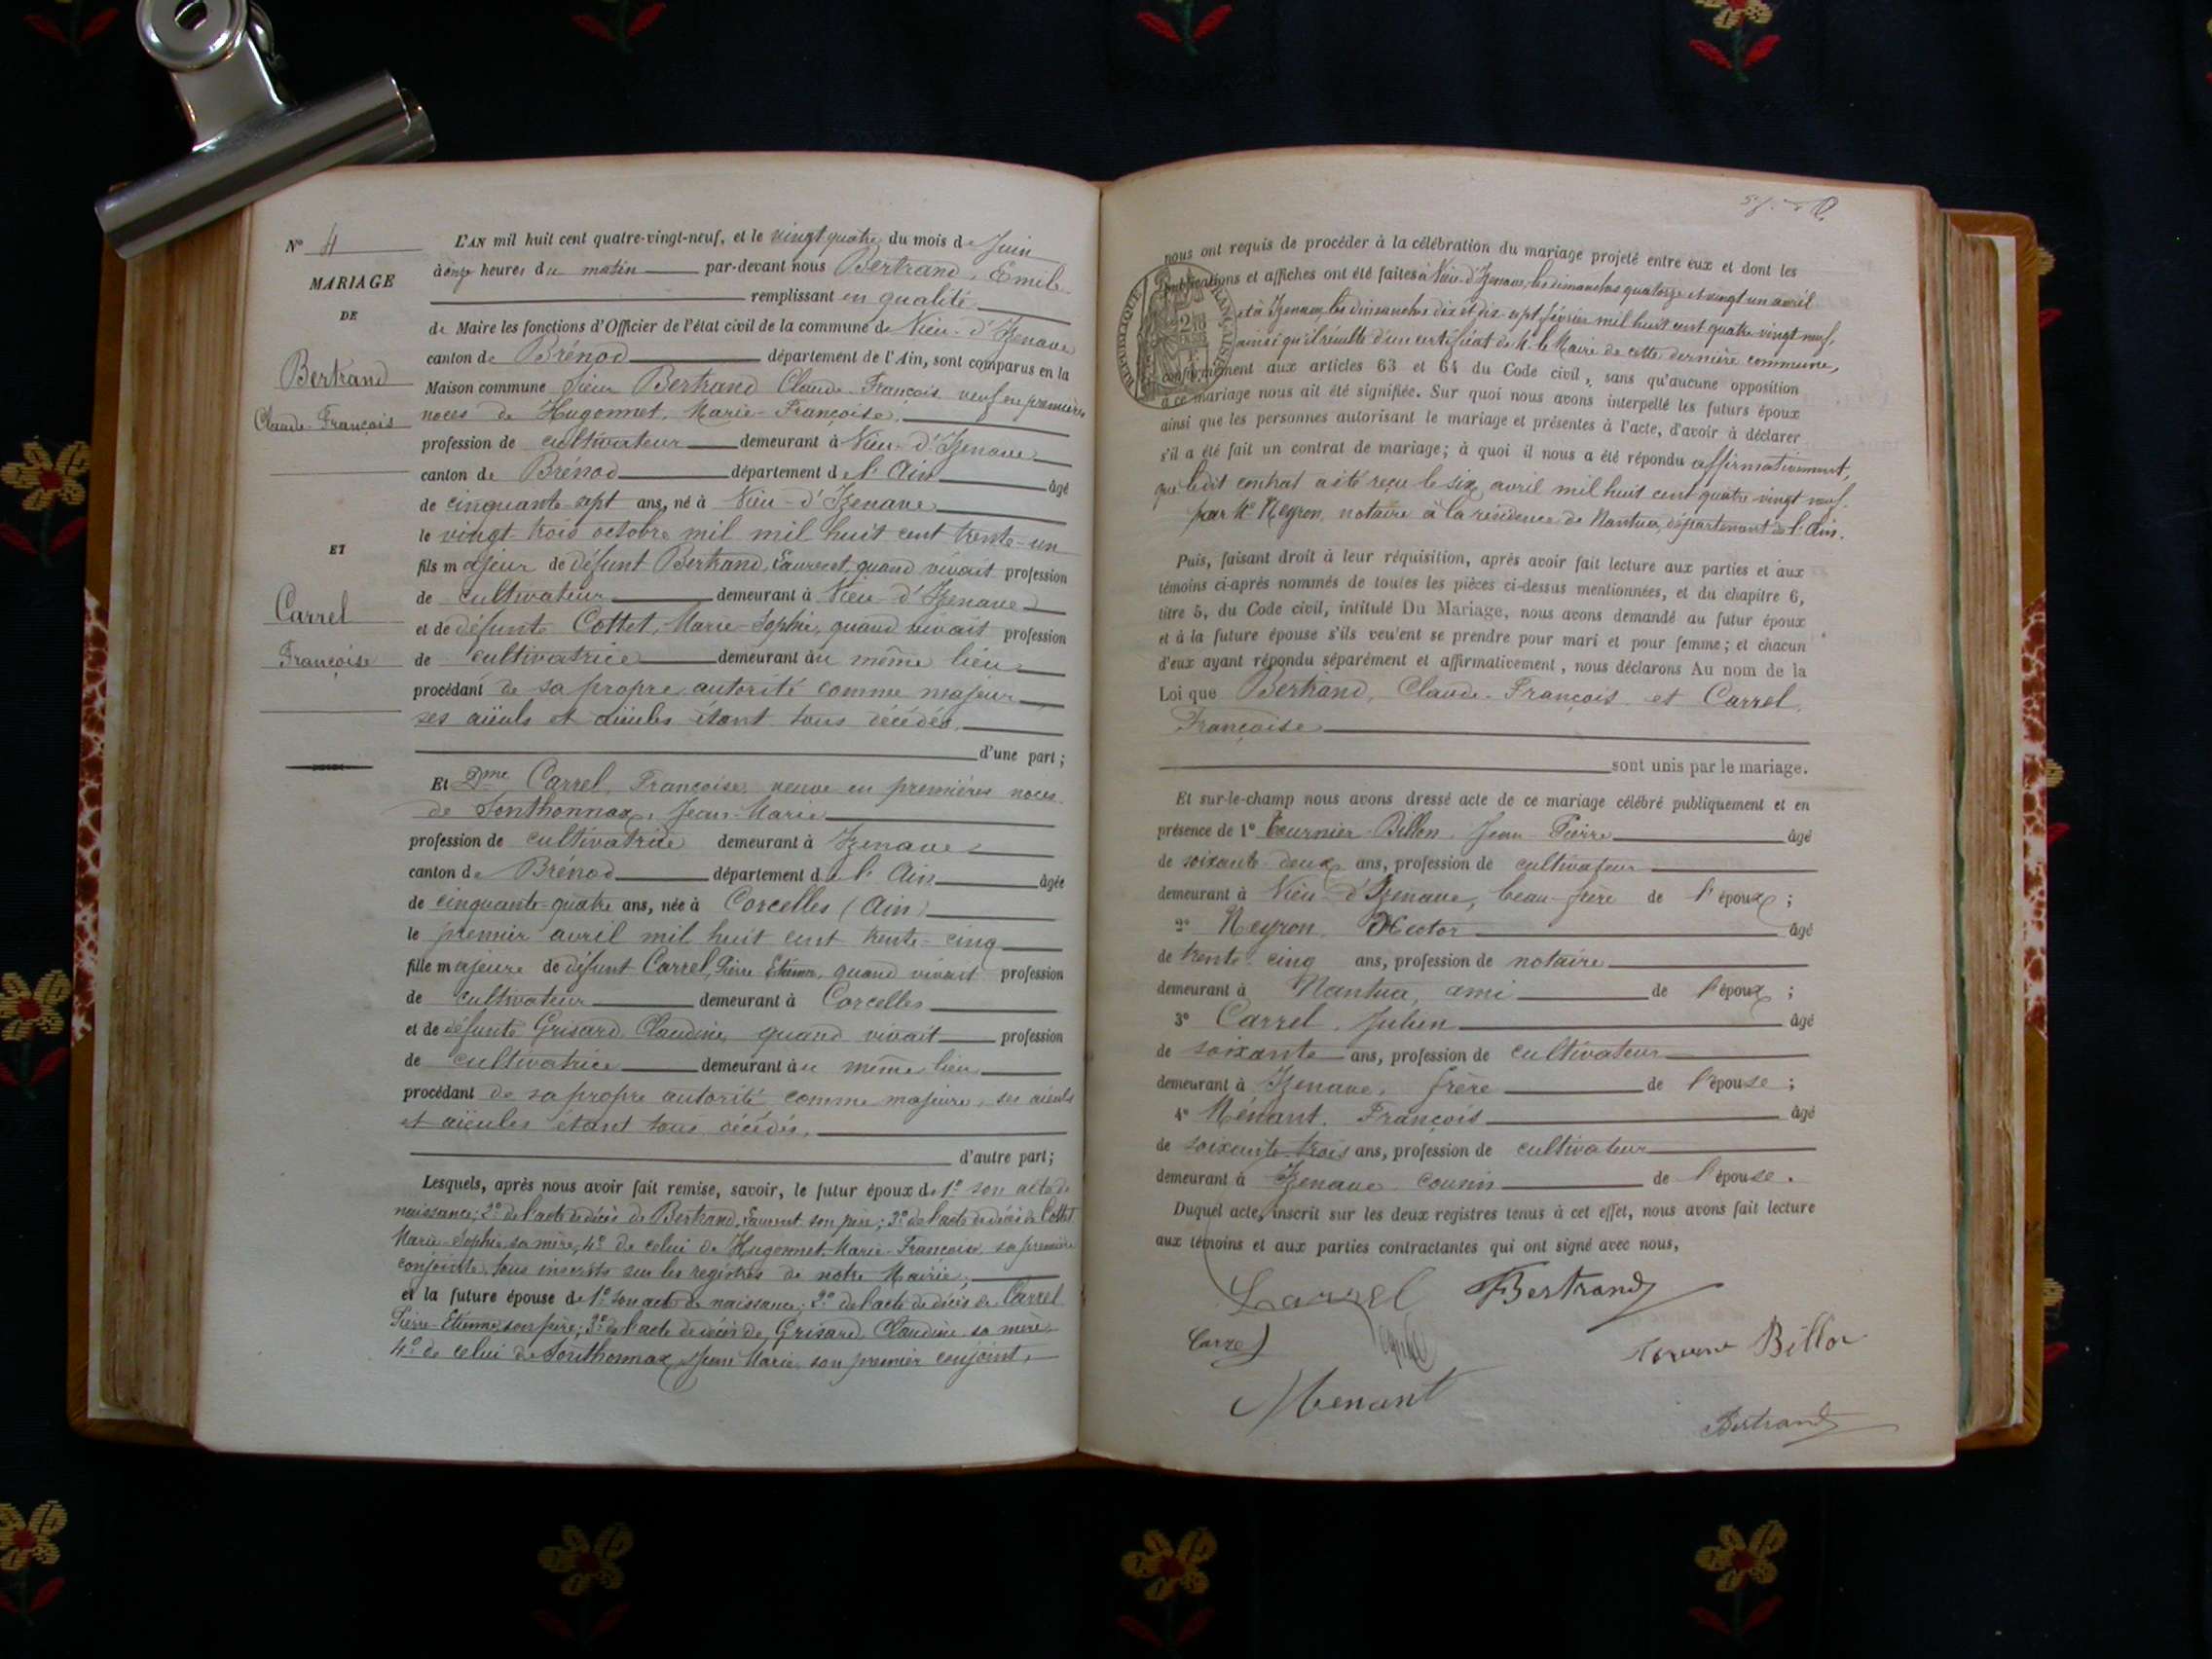 N° 4
MARIAGE
DE
Bertrand
Claude-François
ET
Carrel
Françoise
L'AN mil huit cent quatre-vingt-neuf, et le vingt quatre du mois de Juin
à onze heures du matin par-devant nous Bertrand, Emile
remplissant en qualité
de Maire les fonctions d'Officier de l'état civil de la commune de Vieu-d'Izenave
canton de Brénod département de l'Ain, sont comparus en la
Maison commune Sieur Bertrand Claude-François, veuf en premières
noces de Hugonnet, Marie-Françoise,
profession de cultivateur demeurant à Vieu-d'Izenave
canton de Brénod département de l'Ain âgé
de cinquante-sept ans, né à Vieu-d'Izenave
le vingt-trois octobre mil mil huit cent trente-un
fils majeur de défunt Bertrand, Laurent, quand vivait profession
de cultivateur demeurant à Vieu-d'Izenave
et de défunte Cottet, Marie-Sophie, quand vivait profession
de cultivatrice demeurant au même lieu
procédant de sa propre autorité comme majeur
ses aïeuls et aïeules étant tous décédés,
d'une part;
Et Dme Carrel, Françoise, veuve en premières noces
de Sonthonnax, Jean-Marie
profession de cultivatrice demeurant à Izenave
canton de Brénod département de l'Ain âgée
de cinquante-quatre ans, née à Corcelles (Ain)
le premier avril mil huit cent trente-cinq
fille majeure de défunt Carrel, Pierre Etienne, quand vivait profession
de cultivateur demeurant à Corcelles
et de défunte Grisard Claudine, quand vivait profession
de cultivatrice demeurant au même lieu
procédant de sa propre autorité comme majeure, ses aïeuls
et aïeules étant tous décédés,
d'autre part;
Lesquels, après nous avoir fait remise, savoir, le futur époux de 1° son acte de
naissance; 2° de l'acte de décès de Bertrand, Laurent son père; 3° de l'acte de décès de Cottet
Marie-Sophie, sa mère, 4° de celui de Hugonnet Marie-Françoise sa première
conjointe, tous inscrits sur les registres de notre Mairie;
et la future épouse de 1° son acte de naissance; 2° de l'acte de décès de Carrel
Pierre-Etienne, son père; 3° de l'acte de décès de Grisard, Claudine, sa mère,
4° de celui de Sonthonnax, Jean Marie, son premier conjoint,
nous ont requis de procéder à la célébration du mariage projeté entre eux et dont les
publications et affiches ont été faites à Vieu-d'Izenave, les dimanches quatorze et vingt un avril
et à Izenave, les dimanches dix et dix-sept février mil huit cent quatre vingt neuf,
ainsi qu'il résulte d'un certificat de M. le Maire de cette dernière commune,
conformément aux articles 63 et 64 du Code civil, sans qu'aucune opposition
à ce mariage nous ait été signifiée. Sur quoi nous avons interpellé les futurs époux
ainsi que les personnes autorisant le mariage et présentes à l'acte, d'avoir à déclarer
s'il a été fait un contrat de mariage; à quoi il nous a été répondu affirmativement,
que ledit contrat a été reçu le six avril mil huit cent quatre vingt neuf
par Me Neyron, notaire à la résidence de Nantua, département de l'Ain.
RÉPUBLIQUE FRANÇAISE
Puis, faisant droit à leur réquisition, après avoir fait lecture aux parties et aux
témoins ci-après nommés de toutes les pièces ci-dessus mentionnées, et du chapitre 6,
titre 5, du Code civil, intitulé Du Mariage, nous avons demandé au futur époux
et à la future épouse s'ils veulent se prendre pour mari et pour femme; et chacun
d'eux ayant répondu séparément et affirmativement, nous déclarons Au nom de la
Loi que Bertrand, Claude-François et Carrel,
Françoise
sont unis par le mariage.
Et sur-le-champ nous avons dressé acte de ce mariage célébré publiquement et en
présence de 1° Tournier-Billon, Jean-Pierre âgé
de soixante-deux ans, profession de cultivateur
demeurant à Vieu-d'Izenave, beau-frère de l'époux;
2° Neyron, Hector âgé
de trente-cinq ans, profession de notaire
demeurant à Nantua, ami de l'époux;
3° Carrel, Julien âgé
de soixante ans, profession de cultivateur
demeurant à Izenave, frère de l'épouse;
4° Ménant, François âgé
de soixante-trois ans, profession de cultivateur
demeurant à Izenave cousin de l'épouse.
Duquel acte, inscrit sur les deux registres tenus à cet effet, nous avons fait lecture
aux témoins et aux parties contractantes qui ont signé avec nous,
Carrel Bertrand
Billon
Menant
Bertrand